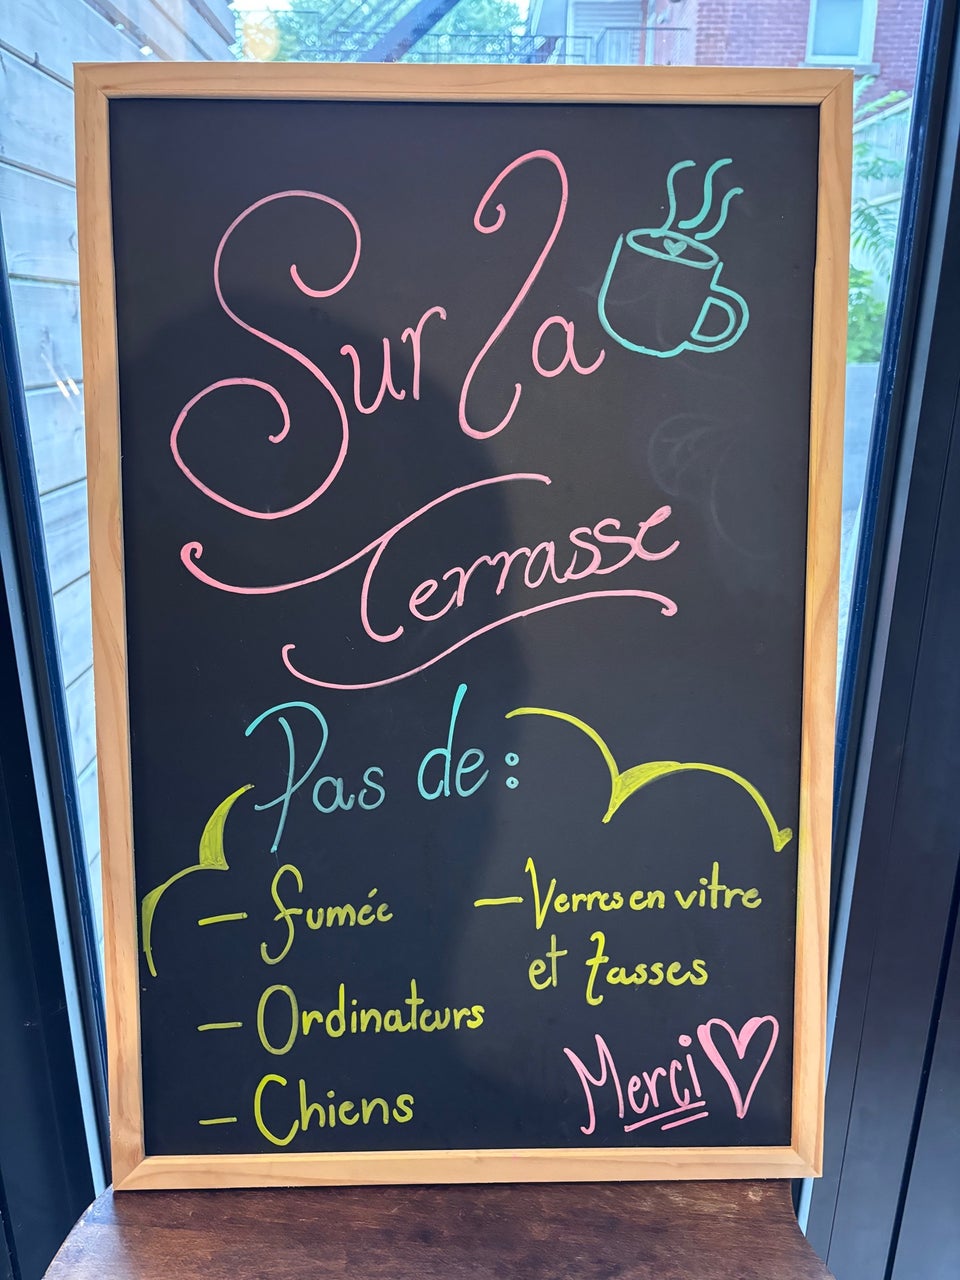 Sur la
Terrasse
Pas de :
- fumée
- Ordinateurs
- Chiens
- Verres en vitre
et Tasses
Merci